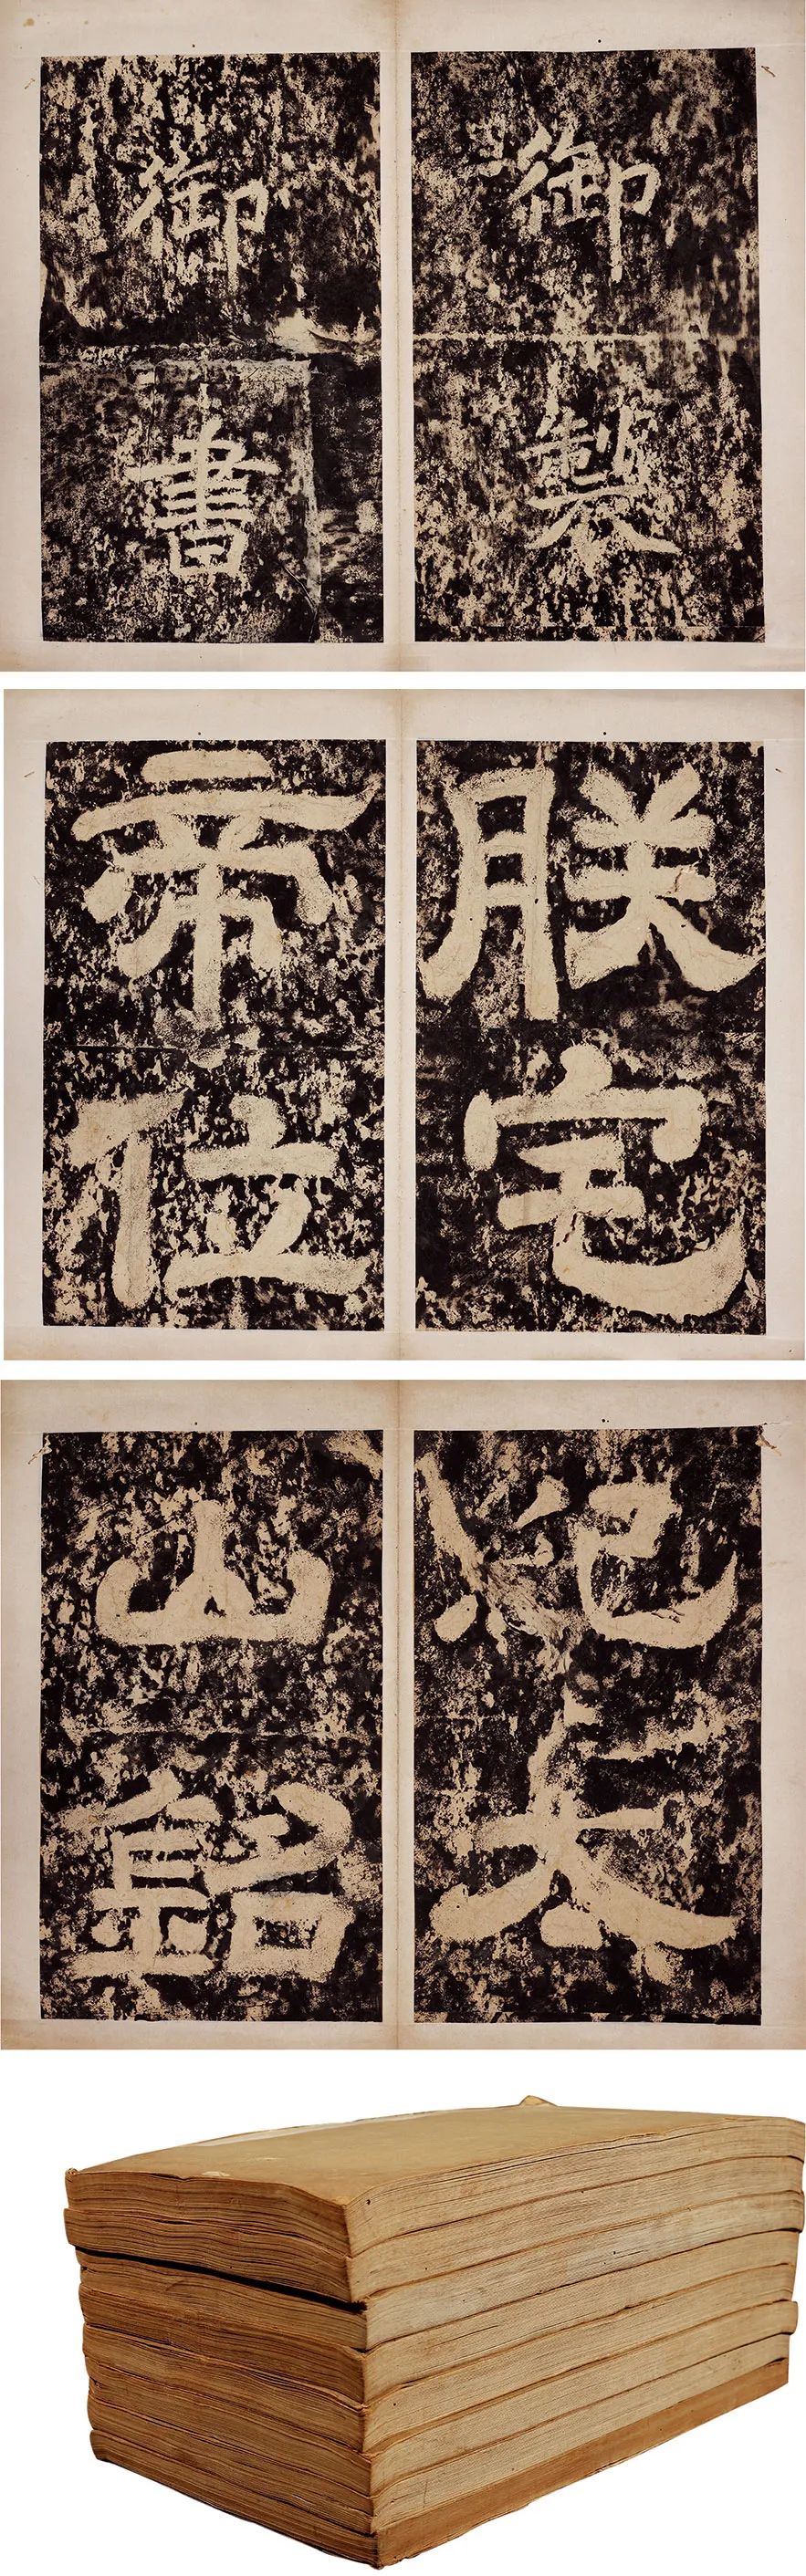 御製
御書
朕宅
帝位
紀太
山銘